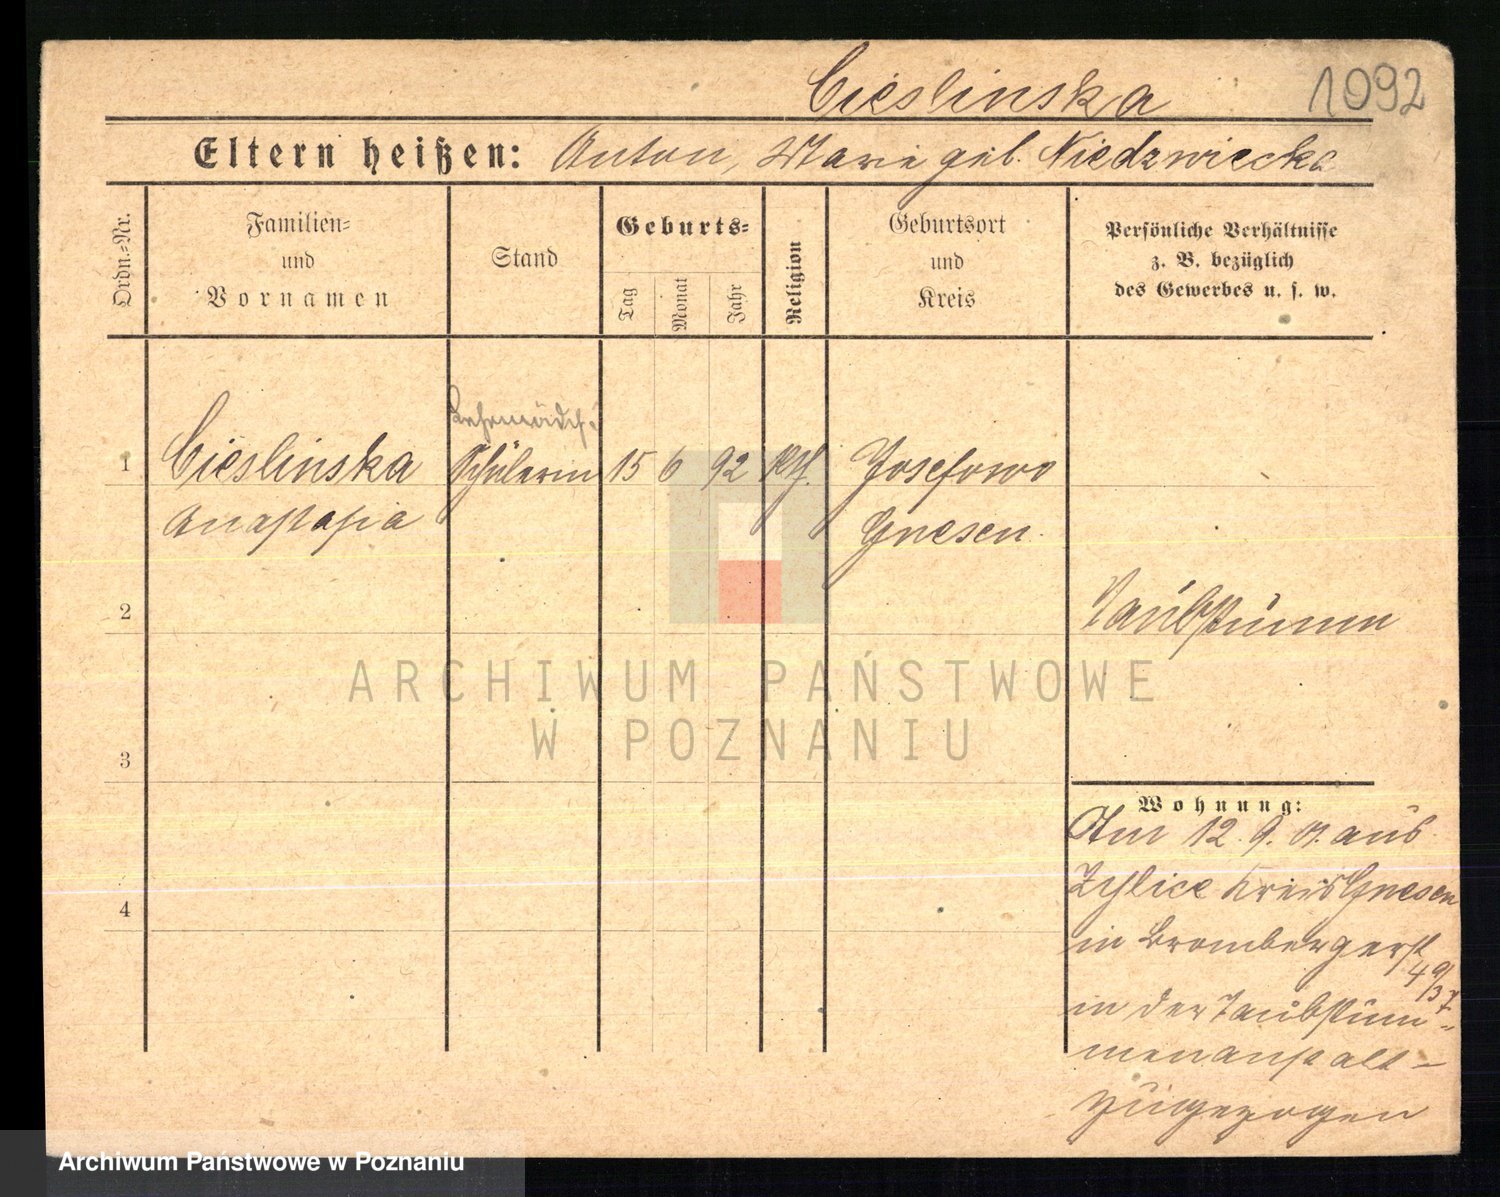 Cieslinska 1092
Eltern heißen: Anton, Marie geb. Niedzwiecka
Ordn.-Nr.
Familien-
und
Vornamen
Stand
Geburts-
Tag
Monat
Jahr
Religion
Geburtsort
und
Kreis
Persönliche Verhältnisse
z. B. bezüglich
des Gewerbes u. s. w.
Lehrmädch
1 Cieslinska Schülerin 15 6 92 kth. Josefowo
Anastasia Gnesen
2 Taubstumm
3
Wohnung:
Am 12. 9. 01. aus
Kreis Gnesen
4
in Brombergerst
in der Taubstum-
menanstalt
zugezogen
ARCHIWUM PAŃSTWOWE
W POZNANIU
Archiwum Państwowe w Poznaniu